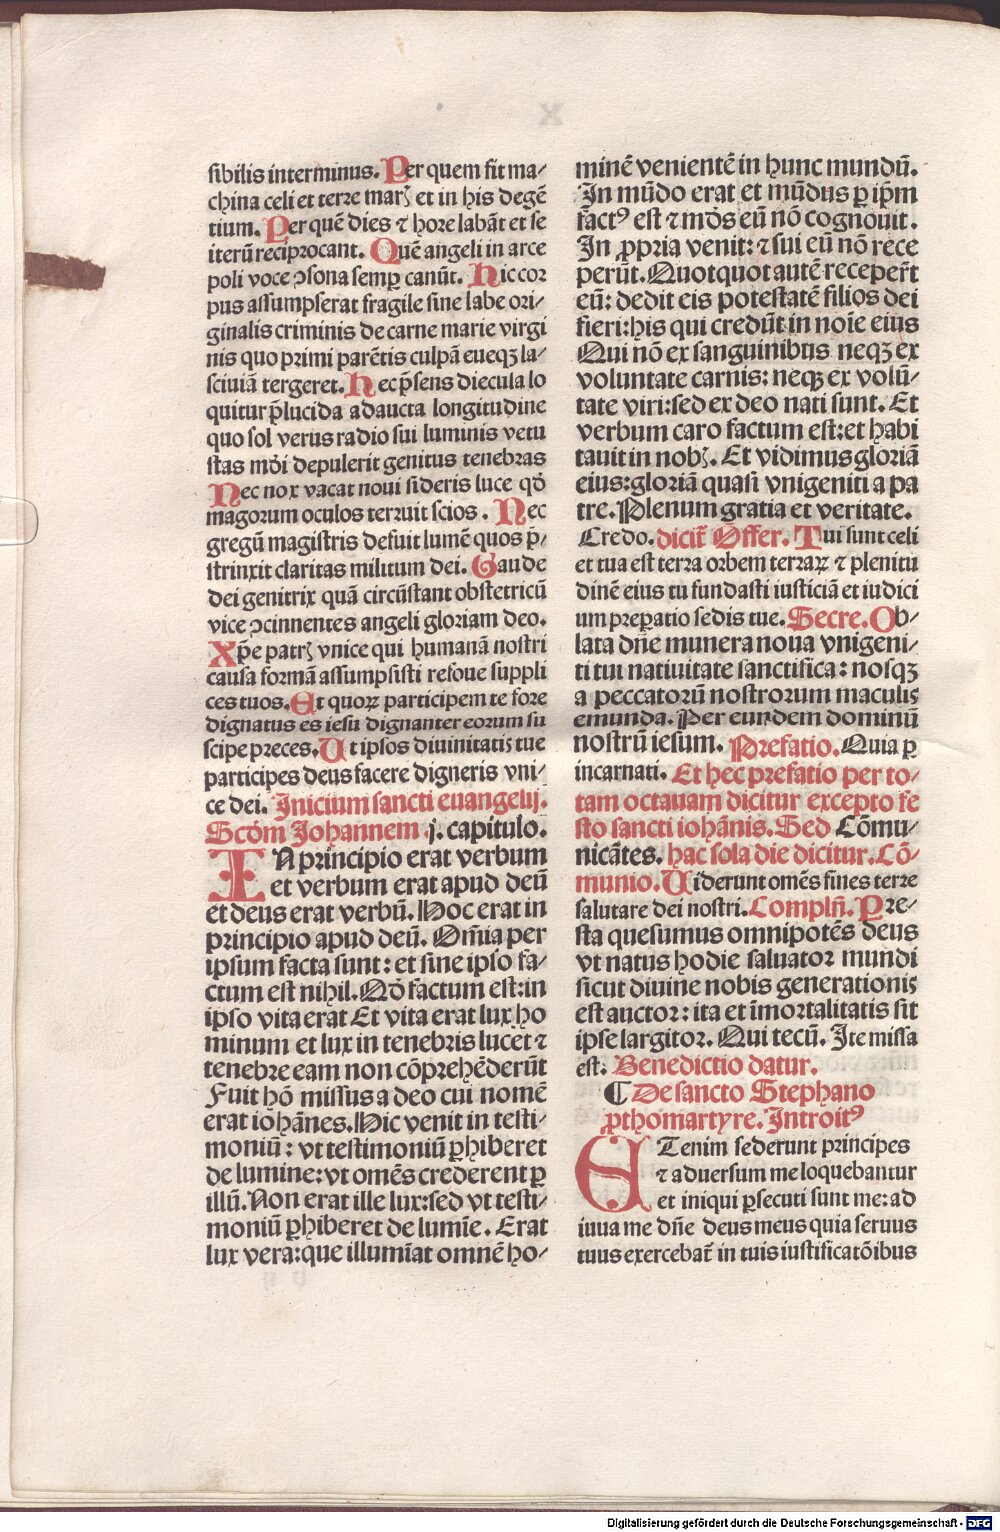 sibilis interminus. Per quem fit ma-
china celi et terre marꝫ et in his degē
tium. Per quē dies ⁊ hore labāt et se
iterū reciprocant. Quē angeli in arce
poli voce ↄsona semꝑ canūt. Hic cor
pus assumpserat fragile sine labe ori-
ginalis criminis de carne marie virgi
nis quo primi parētis culpā eueqꝫ la-
sciuiā tergeret. Hec p̄sens diecula lo
quitur p̄lucida adaucta longitudine
quo sol verus radio sui luminis vetu
stas mōi depulerit genitus tenebras
Nec nox vacat noui sideris luce qō
magorum oculos terruit scios. Nec
gregū magistris defuit lumē quos p̄-
strinxit claritas militum dei. Gaude
dei genitrix quā circūstant obstetricū
vice ↄcinnentes angeli gloriam deo.
Xp̄e patrꝫ vnice qui humanā nostri
causa formā assumpsisti refoue suppli
ces tuos. Et quoꝝ participem te fore
dignatus es iesu dignanter eorum su
scipe preces. Ut ipsos diuinitatis tue
participes deus facere digneris vni-
ce dei. Inicium sancti euangelij.
Scōm Johannem .j. capitulo.
IN principio erat verbum
et verbum erat apud deū
et deus erat verbū. Hoc erat in
principio apud deū. Om̄ia per
ipsum facta sunt: et sine ipso fa-
ctum est nihil. Qō factum est: in
ipso vita erat Et vita erat lux ho
minum et lux in tenebris lucet ⁊
tenebre eam non cōprehēderūt
Fuit hō missus a deo cui nomē
erat iohānes. Hic venit in testi-
moniū: vt testimoniū ꝑhiberet
de lumine: vt omēs crederent ꝑ
illū. Non erat ille lux: sed vt testi-
moniū ꝑhiberet de lumīe. Erat
lux vera: que illumīat omnē ho-
minē venientē in hunc mundū.
In mūdo erat et mūdus ꝑ ip̄m
factꝰ est ⁊ mōs eū nō cognouit.
In ꝓpria venit: ⁊ sui eū nō rece
perūt. Quotquot autē receper̄t
eū: dedit eis potestatē filios dei
fieri: his qui credūt in noīe eius
Qui nō ex sanguinibus neqꝫ ex
voluntate carnis: neqꝫ ex volū-
tate viri: sed ex deo nati sunt. Et
verbum caro factum est: et habi
tauit in nobꝫ. Et vidimus gloriā
eius: gloriā quasi vnigeniti a pa
tre. Plenum gratia et veritate.
Credo. dicit̄ Offer. Tui sunt celi
et tua est terra orbem terraꝝ ⁊ plenitu
dinē eius tu fundasti iusticiā et iudici
um preꝑatio sedis tue. Secre. Ob-
lata dn̄e munera noua vnigeni-
ti tui natiuitate sanctifica: nosqꝫ
a peccatorū nostrorum maculis
emunda. Per eundem dominū
nostrū iesum. Prefatio. Quia ꝑ
incarnati. Et hec prefatio per to-
tam octauam dicitur excepto fe
sto sancti iohānis. Sed Cōmu-
nicātes. hac sola die dicitur. Cō-
munio. Uiderunt omēs fines terre
salutare dei nostri. Complen̄. Pre-
sta quesumus omnipotēs deus
vt natus hodie saluator mundi
sicut diuine nobis generationis
est auctor: ita et īmortalitatis sit
ipse largitor. Qui tecū. Ite missa
est. Benedictio datur.
¶ De sancto Stephano
ꝓthomartyre. Introitꝰ
ETenim sederunt principes
⁊ aduersum me loquebantur
et iniqui ꝑsecuti sunt me: ad
iuua me dn̄e deus meus quia seruus
tuus exercebat̄ in tuis iustificatōibus
Digitalisierung gefördert durch die Deutsche Forschungsgemeinschaft - DFG